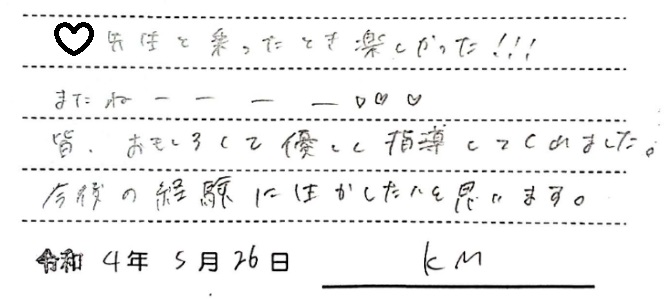 ♡先生と乗ったとき楽しかった!!!
またねーーーー♡♡♡
皆、おもしろくて優しく指導してくれました。
今後の経験に生かしたいと思います。
令和 4年 5月 26日 KM